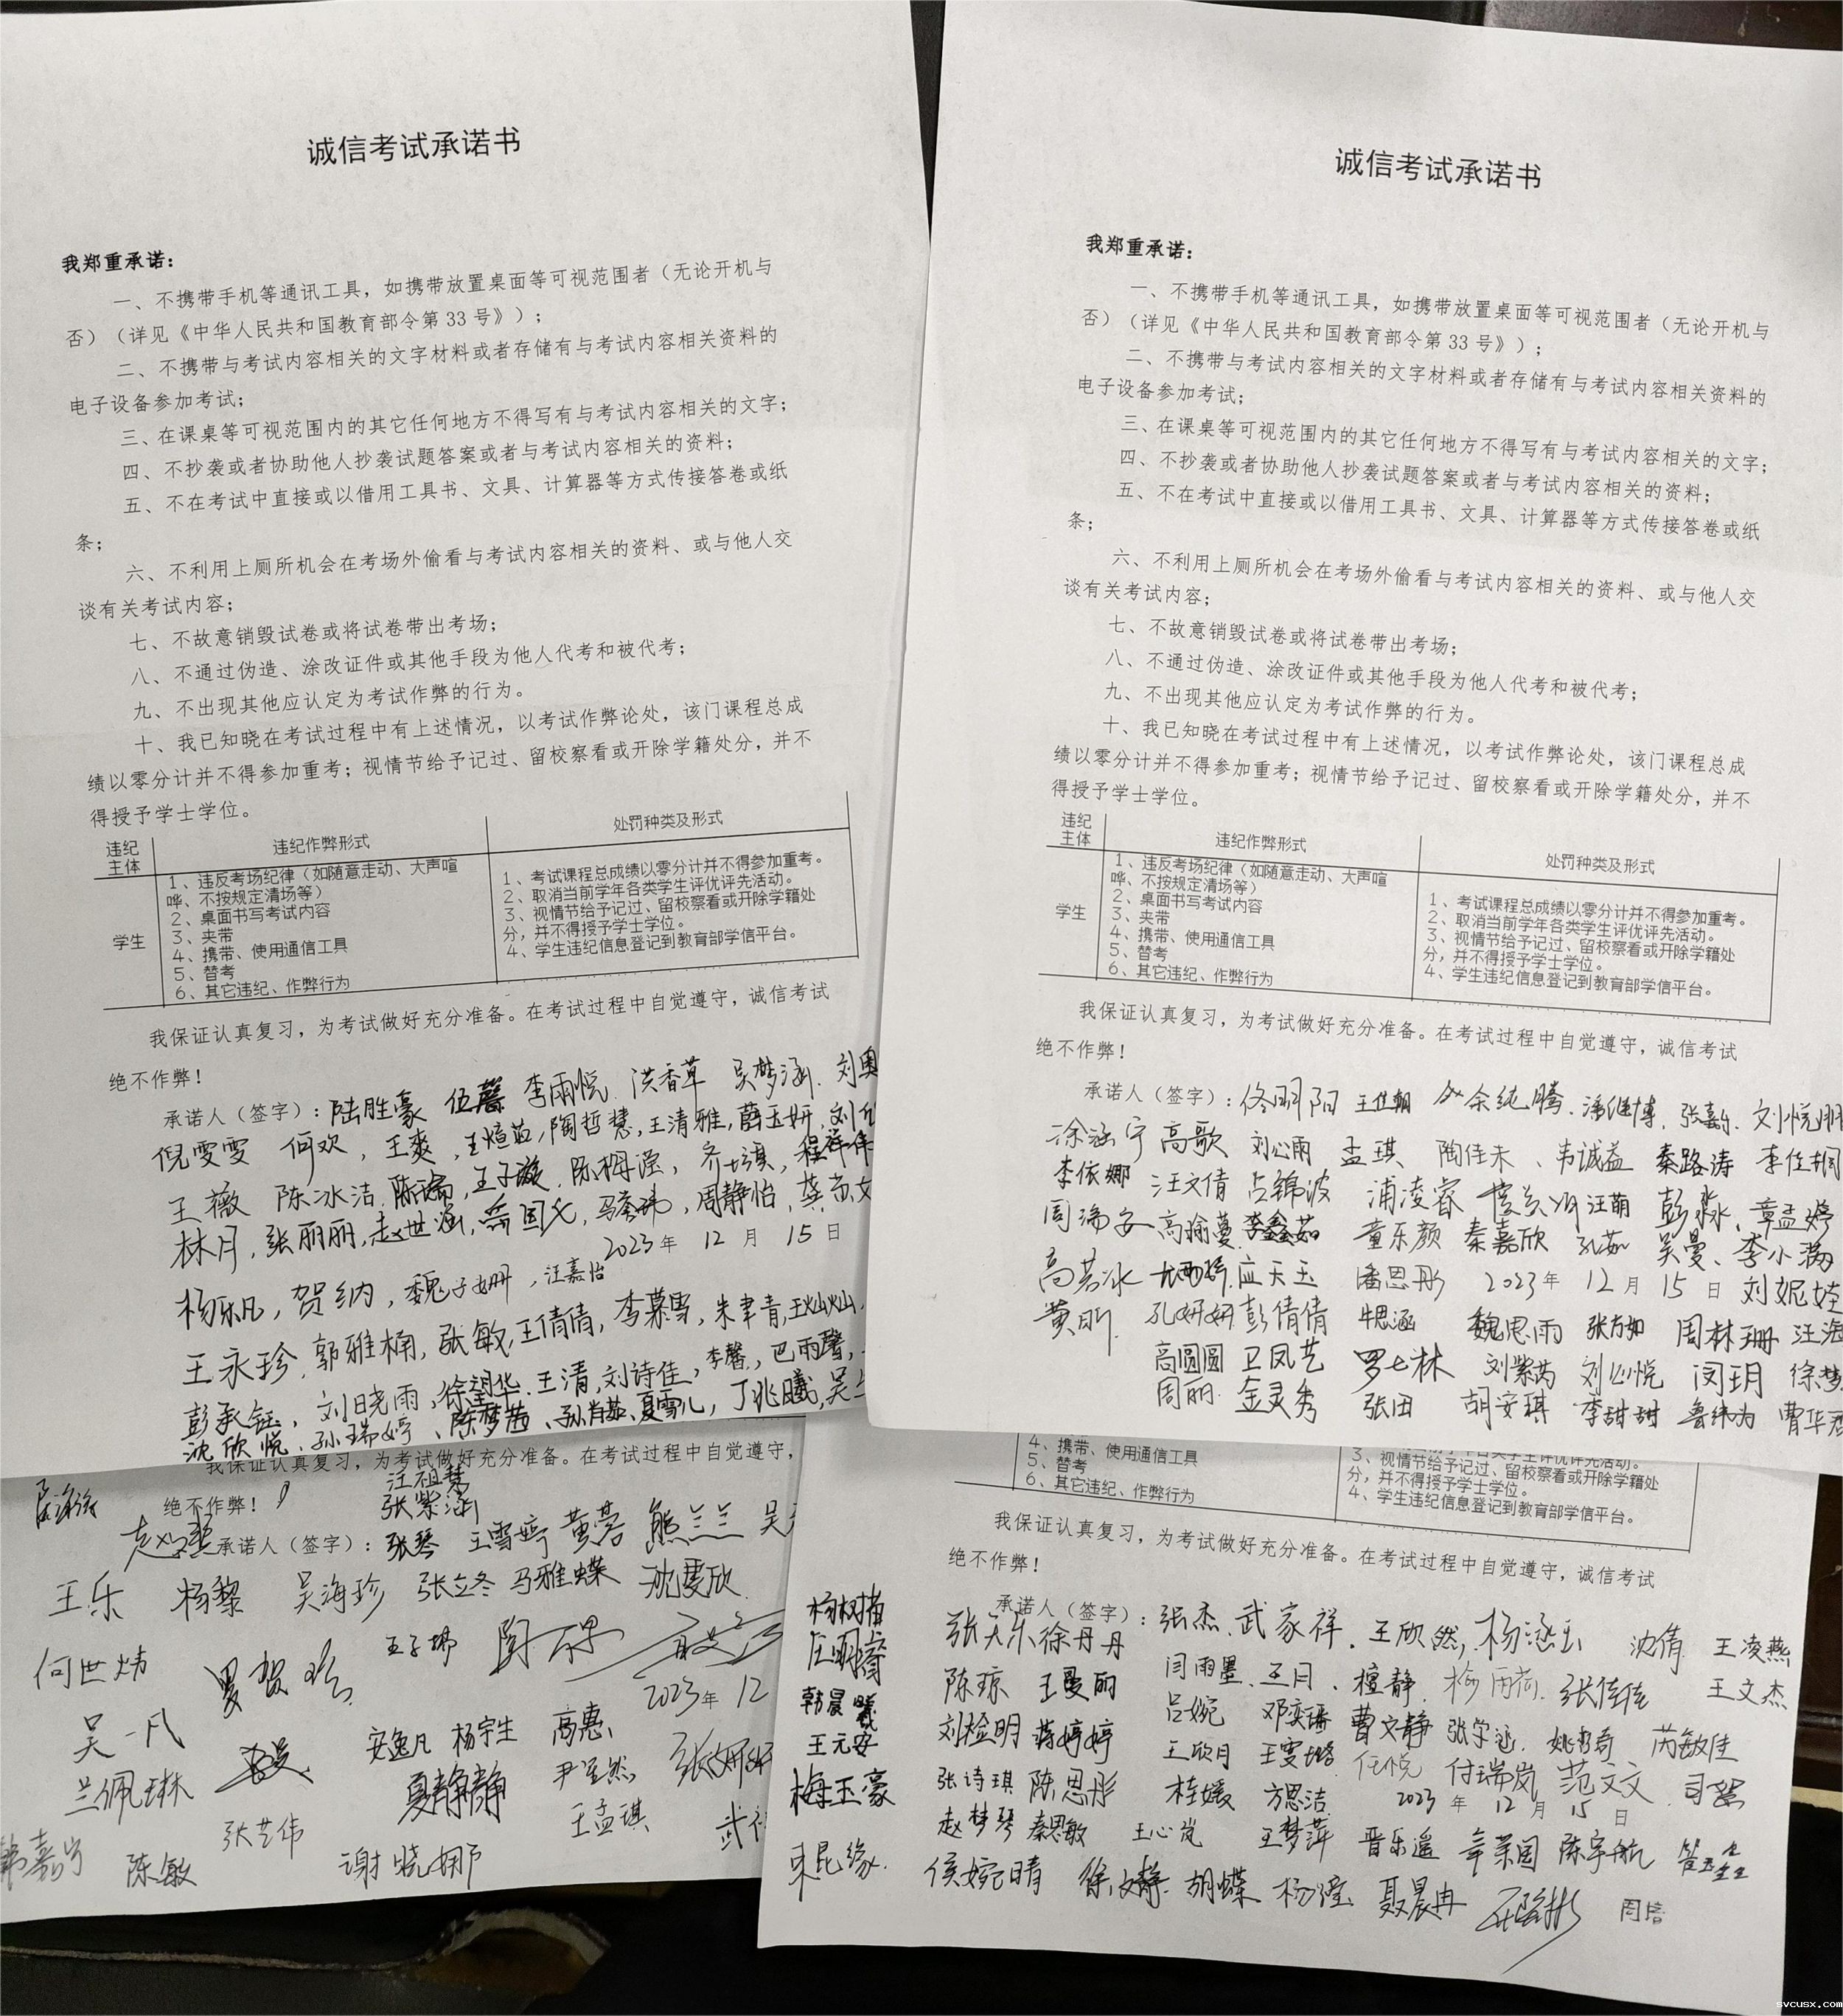 诚信考试承诺书
我郑重承诺：
一、不携带手机等通讯工具，如携带放置桌面等可视范围者（无论开机与
否）（详见《中华人民共和国教育部令第 33 号》）；
二、不携带与考试内容相关的文字材料或者存储有与考试内容相关资料的
电子设备参加考试；
三、在课桌等可视范围内的其它任何地方不得写有与考试内容相关的文字；
四、不抄袭或者协助他人抄袭试题答案或者与考试内容相关的资料；
五、不在考试中直接或以借用工具书、文具、计算器等方式传接答卷或纸
条；
六、不利用上厕所机会在考场外偷看与考试内容相关的资料、或与他人交
谈有关考试内容；
七、不故意销毁试卷或将试卷带出考场；
八、不通过伪造、涂改证件或其他手段为他人代考和被代考；
九、不出现其他应认定为考试作弊的行为。
十、我已知晓在考试过程中有上述情况，以考试作弊论处，该门课程总成
绩以零分计并不得参加重考；视情节给予记过、留校察看或开除学籍处分，并不
得授予学士学位。
违纪
主体
违纪作弊形式
处罚种类及形式
学生
1、违反考场纪律（如随意走动、大声喧
哗、不按规定清场等）
2、桌面书写考试内容
3、夹带
4、携带、使用通信工具
5、替考
6、其它违纪、作弊行为
1、考试课程总成绩以零分计并不得参加重考。
2、取消当前学年各类学生评优评先活动。
3、视情节给予记过、留校察看或开除学籍处
分，并不得授予学士学位。
4、学生违纪信息登记到教育部学信平台。
我保证认真复习，为考试做好充分准备。在考试过程中自觉遵守，诚信考试
绝不作弊！
承诺人（签字）：陆胜豪 伍馨 李雨悦 洪香草 吴梦涵
倪雯雯 何欢，王爽，陶哲慧，王清雅，薛玉妍
王薇 陈冰洁
林月，张丽丽，赵世涵 周静怡
2023 年 12 月 15 日
杨乐凡，贺纳，魏子姗，汪嘉怡
王永珍，郭雅楠，张敏，王倩倩，李慕雪，朱聿青，王灿灿
彭承钰，刘晓雨，王清，刘诗佳，李馨，巴雨馨
沈欣悦、孙瑞婷、陈梦茜、夏雪儿，丁兆曦
诚信考试承诺书
我郑重承诺：
一、不携带手机等通讯工具，如携带放置桌面等可视范围者（无论开机与
否）（详见《中华人民共和国教育部令第 33 号》）；
二、不携带与考试内容相关的文字材料或者存储有与考试内容相关资料的
电子设备参加考试；
三、在课桌等可视范围内的其它任何地方不得写有与考试内容相关的文字；
四、不抄袭或者协助他人抄袭试题答案或者与考试内容相关的资料；
五、不在考试中直接或以借用工具书、文具、计算器等方式传接答卷或纸
条；
六、不利用上厕所机会在考场外偷看与考试内容相关的资料、或与他人交
谈有关考试内容；
七、不故意销毁试卷或将试卷带出考场；
八、不通过伪造、涂改证件或其他手段为他人代考和被代考；
九、不出现其他应认定为考试作弊的行为。
十、我已知晓在考试过程中有上述情况，以考试作弊论处，该门课程总成
绩以零分计并不得参加重考；视情节给予记过、留校察看或开除学籍处分，并不
得授予学士学位。
违纪
主体
违纪作弊形式
处罚种类及形式
学生
1、违反考场纪律（如随意走动、大声喧
哗、不按规定清场等）
2、桌面书写考试内容
3、夹带
4、携带、使用通信工具
5、替考
6、其它违纪、作弊行为
1、考试课程总成绩以零分计并不得参加重考。
2、取消当前学年各类学生评优评先活动。
3、视情节给予记过、留校察看或开除学籍处
分，并不得授予学士学位。
4、学生违纪信息登记到教育部学信平台。
我保证认真复习，为考试做好充分准备。在考试过程中自觉遵守，诚信考试
绝不作弊！
承诺人（签字）：佟明阳 余纯腾 潘继博 张嘉乐
涂涵宁 高歌 刘心雨 孟琪 陶佳未 韦诚益 秦路涛
李依娜 汪文倩 吕锦波 浦凌睿 汪萌 彭淼 章孟婷
周瑞安 高瑜蔓 李鑫茹 童乐颜 秦嘉欣 孔茹 吴曼、李小满
高若冰 应天玉 潘思彤 2023 年 12 月 15 日
黄明 孔妍妍 彭倩倩 牛思涵 魏思雨 张方如 周林珊
高圆圆 卫凤艺 罗七林 刘紫芮 刘心悦 闵玥
周丽 金灵秀 张田 胡安琪 李甜甜 鲁纬为
我保证认真复习，为考试做好充分准备。在考试过程中自觉遵守，
汪祖慧
绝不作弊！ 张紫涵
承诺人（签字）：张琴 王雪婷 黄蓉 熊兰兰
王乐 杨黎 吴海珍 张立冬 马雅蝶 沈雯欣
何世炜 王子坤
2023 年 12
吴一凡 安逸凡 杨宇生 高惠
兰佩琳 夏静静
张艺伟 王孟琪
韩嘉宁 陈敏 谢晓娜
4、携带、使用通信工具
5、替考
6、其它违纪、作弊行为
3、视情节给予记过、留校察看或开除学籍处
分，并不得授予学士学位。
4、学生违纪信息登记到教育部学信平台。
我保证认真复习，为考试做好充分准备。在考试过程中自觉遵守，诚信考试
绝不作弊！
杨树苗
承诺人（签字）：张杰 武家祥 王欣然 沈倩 王凌燕
张天乐 徐丹丹
陈琼 王曼丽 闫雨墨 王月 檀静 张佳佳 王文杰
韩晨曦
刘检明 蒋婷婷 吕婉 邓奕璠 曹文静 芮敏佳
王元安
王欣月 王雯璐 任悦 付瑞岚 范文文
梅玉豪
张诗琪 陈思彤 桂媛 方思洁
2023 年 12 月 15 日
赵梦琴 秦思敏 王心岚 王梦萍 晋乐遥 陈宇航
侯婉晴 徐文静 胡蝶 杨滢 聂晨冉 周信
svcusx.com